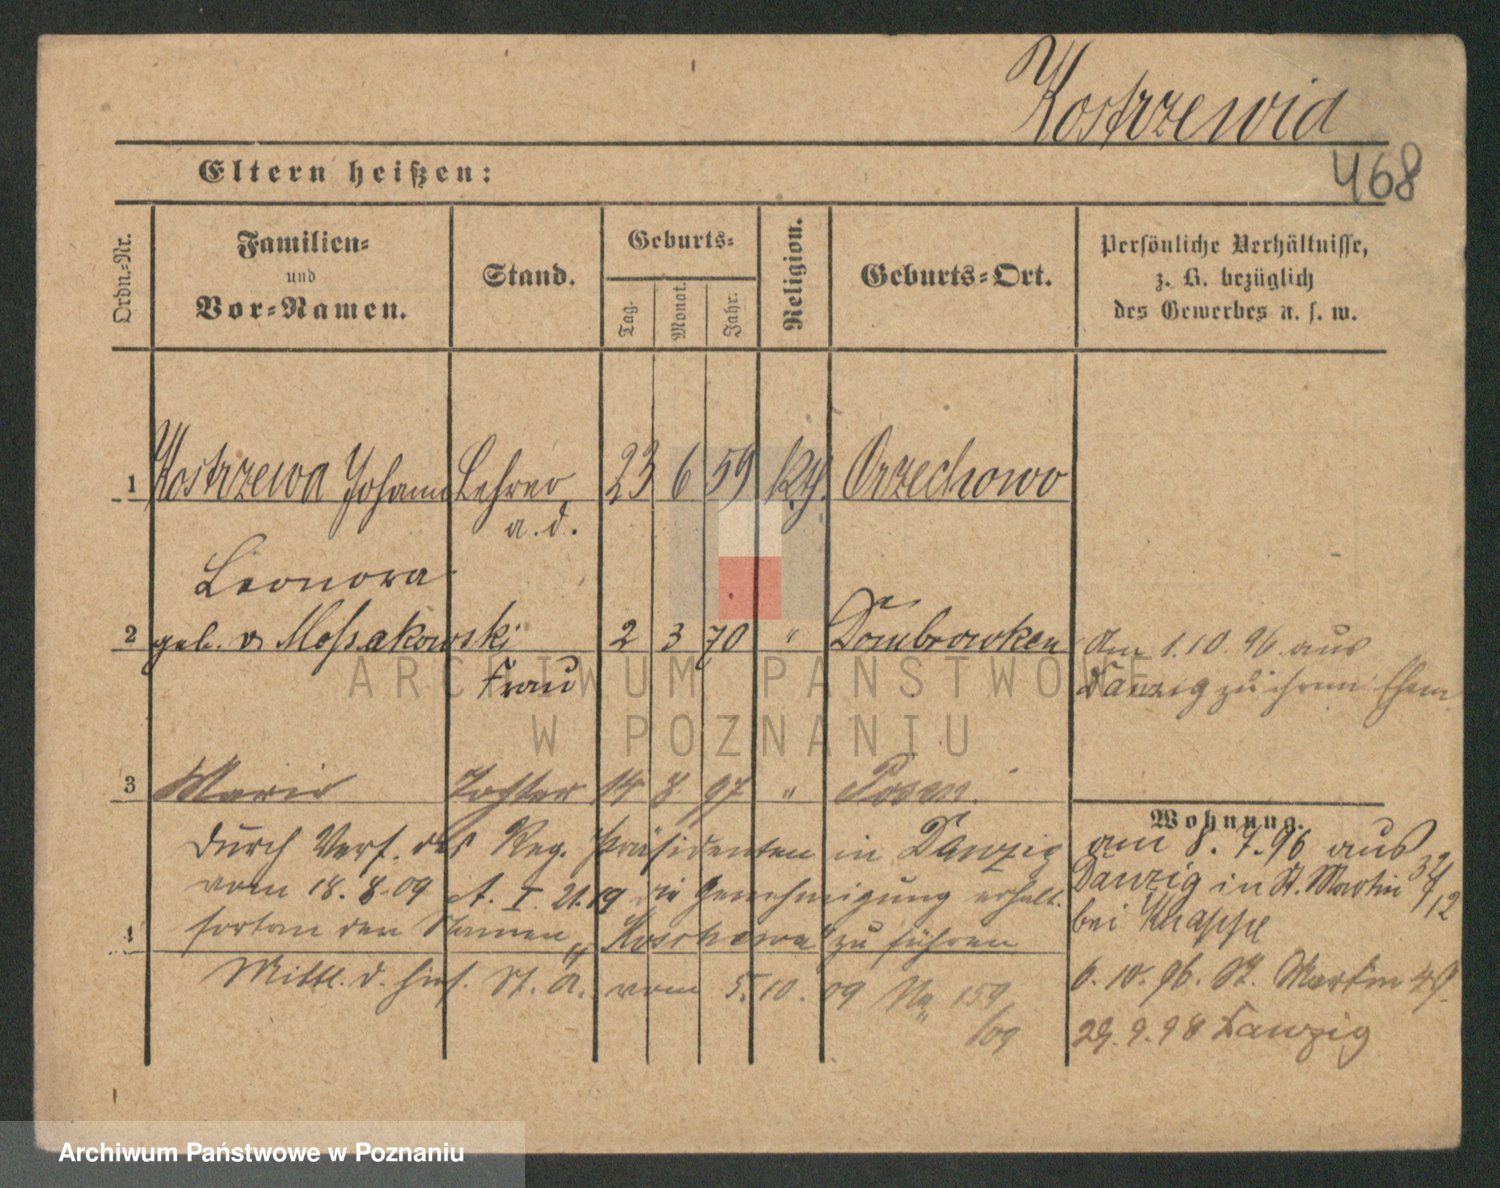 Kostrzewa
468
Eltern heißen:
Ordn.-Nr.
Familien-
und
Vor-Namen.
Stand.
Geburts-
Tag.
Monat.
Jahr.
Religion.
Geburts-Ort.
Persönliche Verhältnisse,
z. B. bezüglich
des Gewerbes u. s. w.
1 Kostrzewa Johann Lehrer 23 6 59 kth. Orzechowo
a. d.
Leonora
2 geb. v. Mossakowski 2 3 70 " Dombrowken
Frau
Am 1.10.96 aus
Danzig zu ihrem Ehem
3 Marie Tochter 14 8 97 " Posen
Wohnung.
durch Verf. des Reg. Präsidenten in Danzig
vom 18.8.09 A. I. 21.19 die Genehmigung erhalt.
4 fortan den Namen „ " zu führen
Mittl. d. hies. St. A. vom 5.10.09 No 159
/09
am 8.7.96 aus
Danzig in St. Martin
bei
6.10.96. St. Martin
29.9.98 Danzig
ARCHIWUM PAŃSTWOWE
W POZNANIU
Archiwum Państwowe w Poznaniu